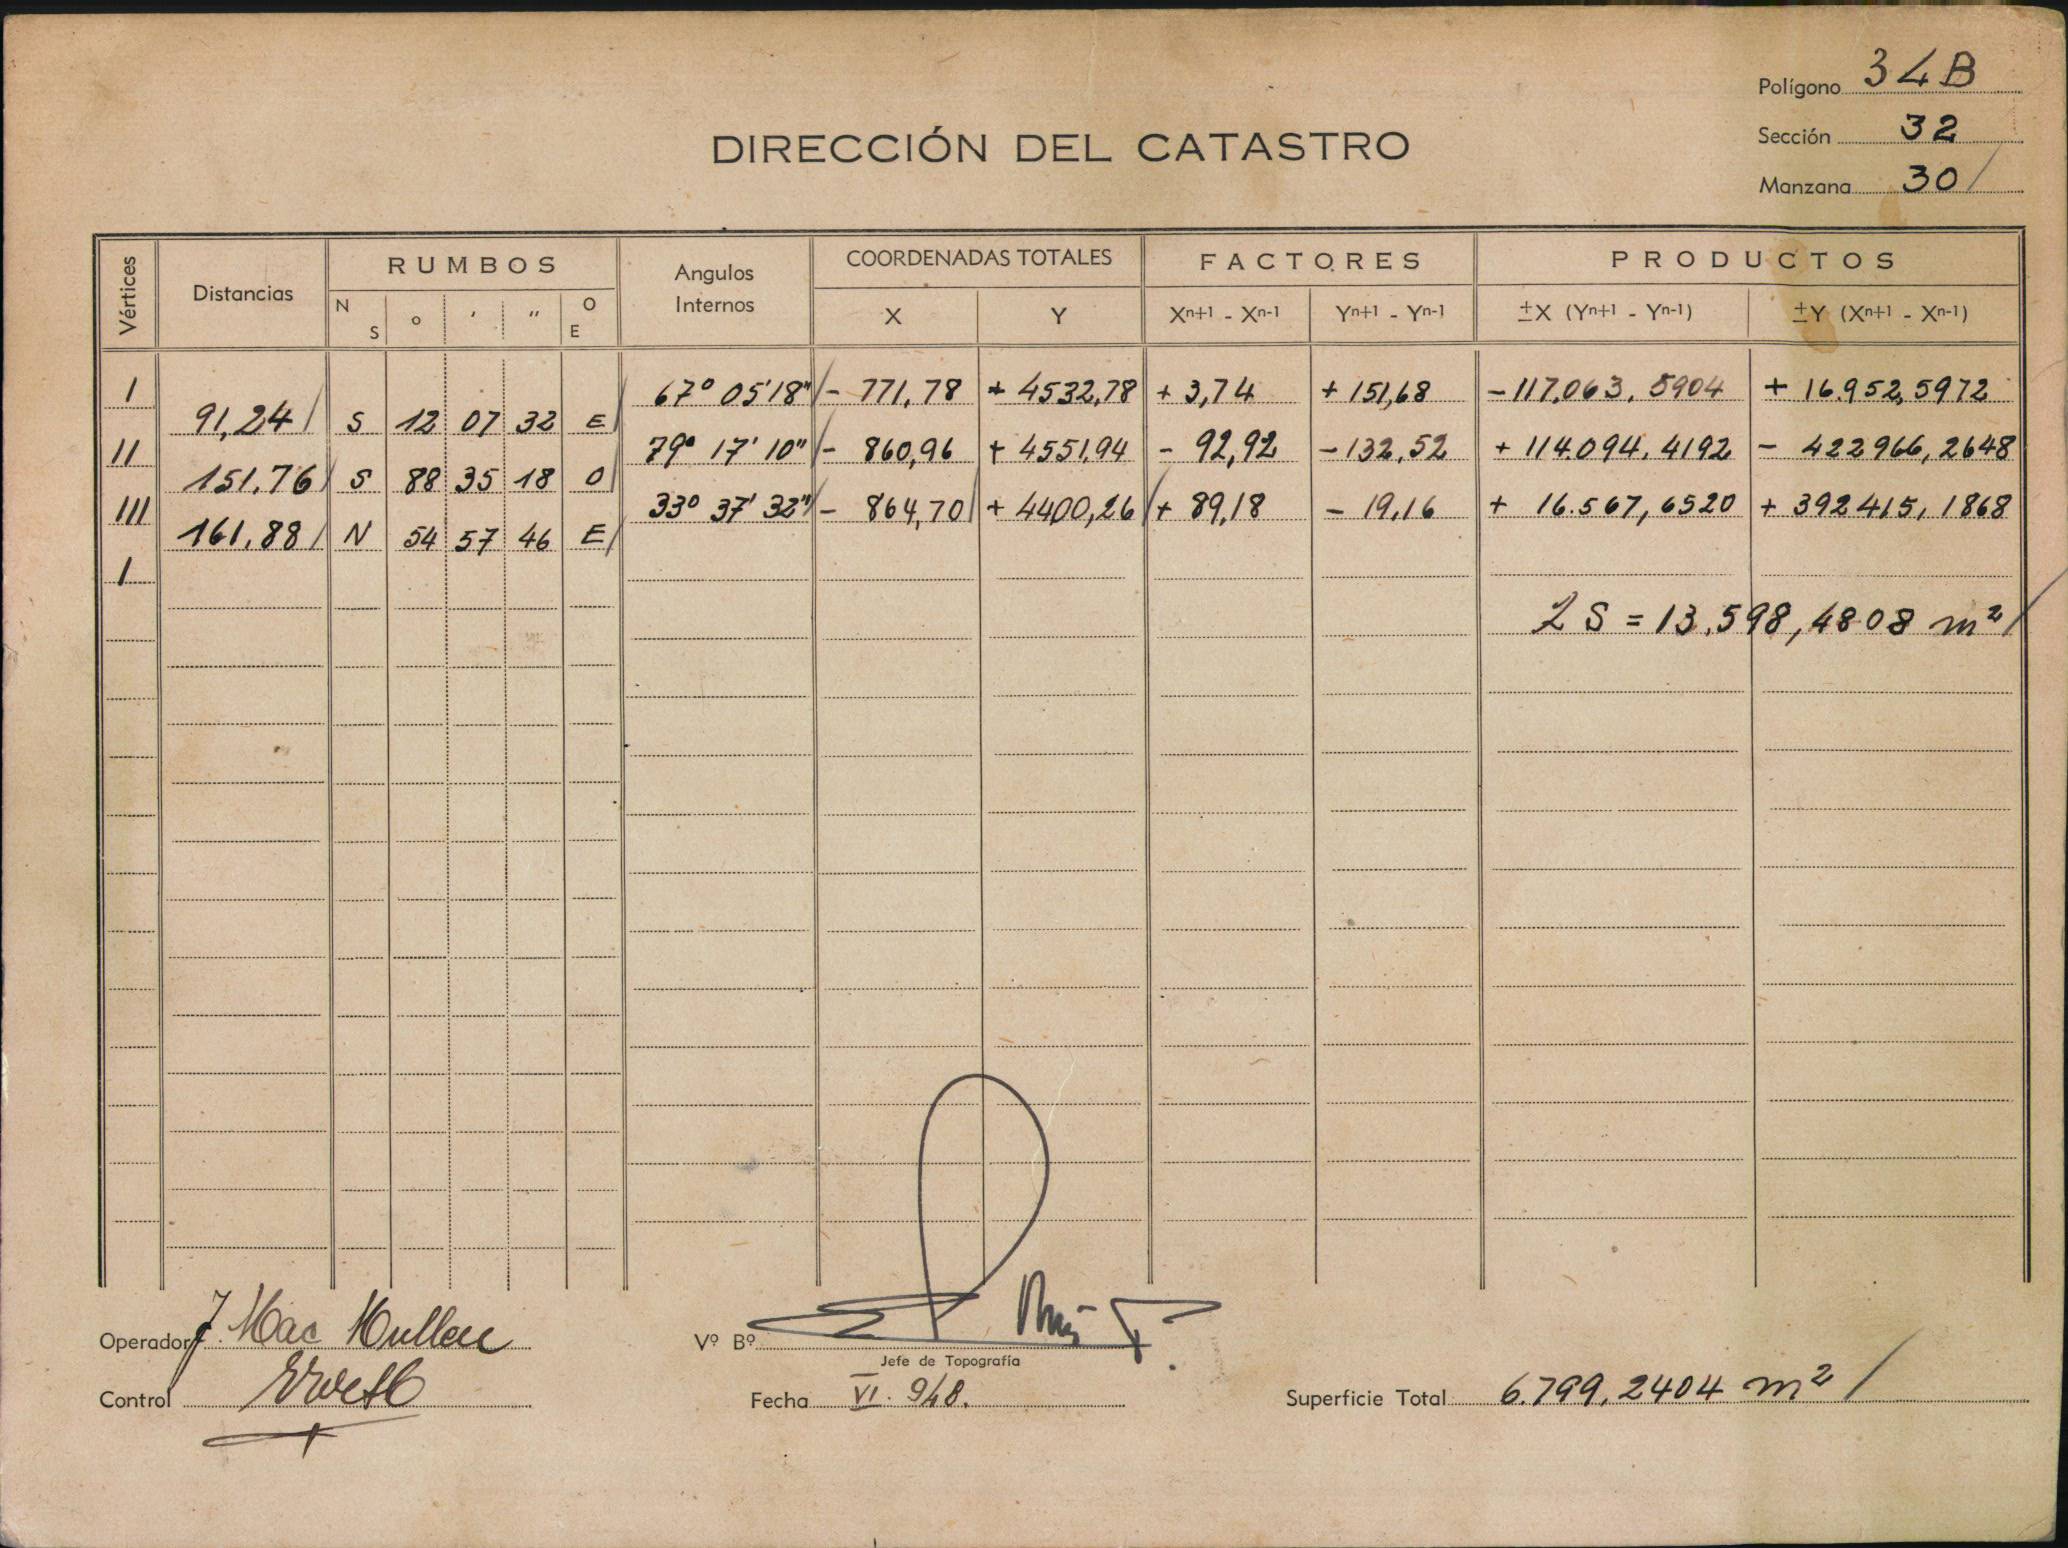 Polígono 34B
DIRECCIÓN DEL CATASTRO
Sección 32
Manzana 30/
Vértices Distancias RUMBOS Angulos Internos COORDENADAS TOTALES FACTORES PRODUCTOS
N S ° ′ ″ O E X Y Xn+1 - Xn-1 Yn+1 - Yn-1 ±X (Yn+1 - Yn-1) ±Y (Xn+1 - Xn-1)
I 67° 05' 18" - 771,78 + 4532,78 + 3,74 + 151,68 - 117.063,5904 + 16.952,5972
91,24 S 12 07 32 E
II 79° 17' 10" - 860,96 + 4551,94 - 92,92 - 132,52 + 114.094,4192 - 422966,2648
151,76 S 88 35 18 O
III 33° 37' 32" - 864,70 + 4400,26 + 89,18 - 19,16 + 16.567,6520 + 392415,1868
161,88 N 54 57 46 E
I
2 S = 13.598,4808 m²
Operador J. Mac Mullen
Vº Bº
Jefe de Topografía
Control
Fecha VI. 948.
Superficie Total 6.799,2404 m²